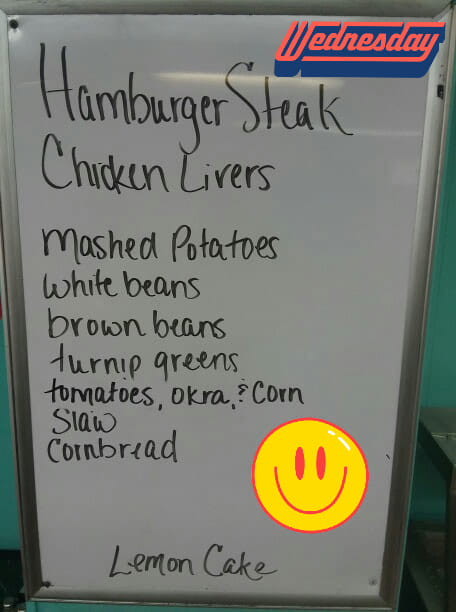 Wednesday
Hamburger Steak
Chicken Livers
Mashed Potatoes
white beans
brown beans
turnip greens
tomatoes, okra, & Corn
Slaw
Cornbread
Lemon Cake